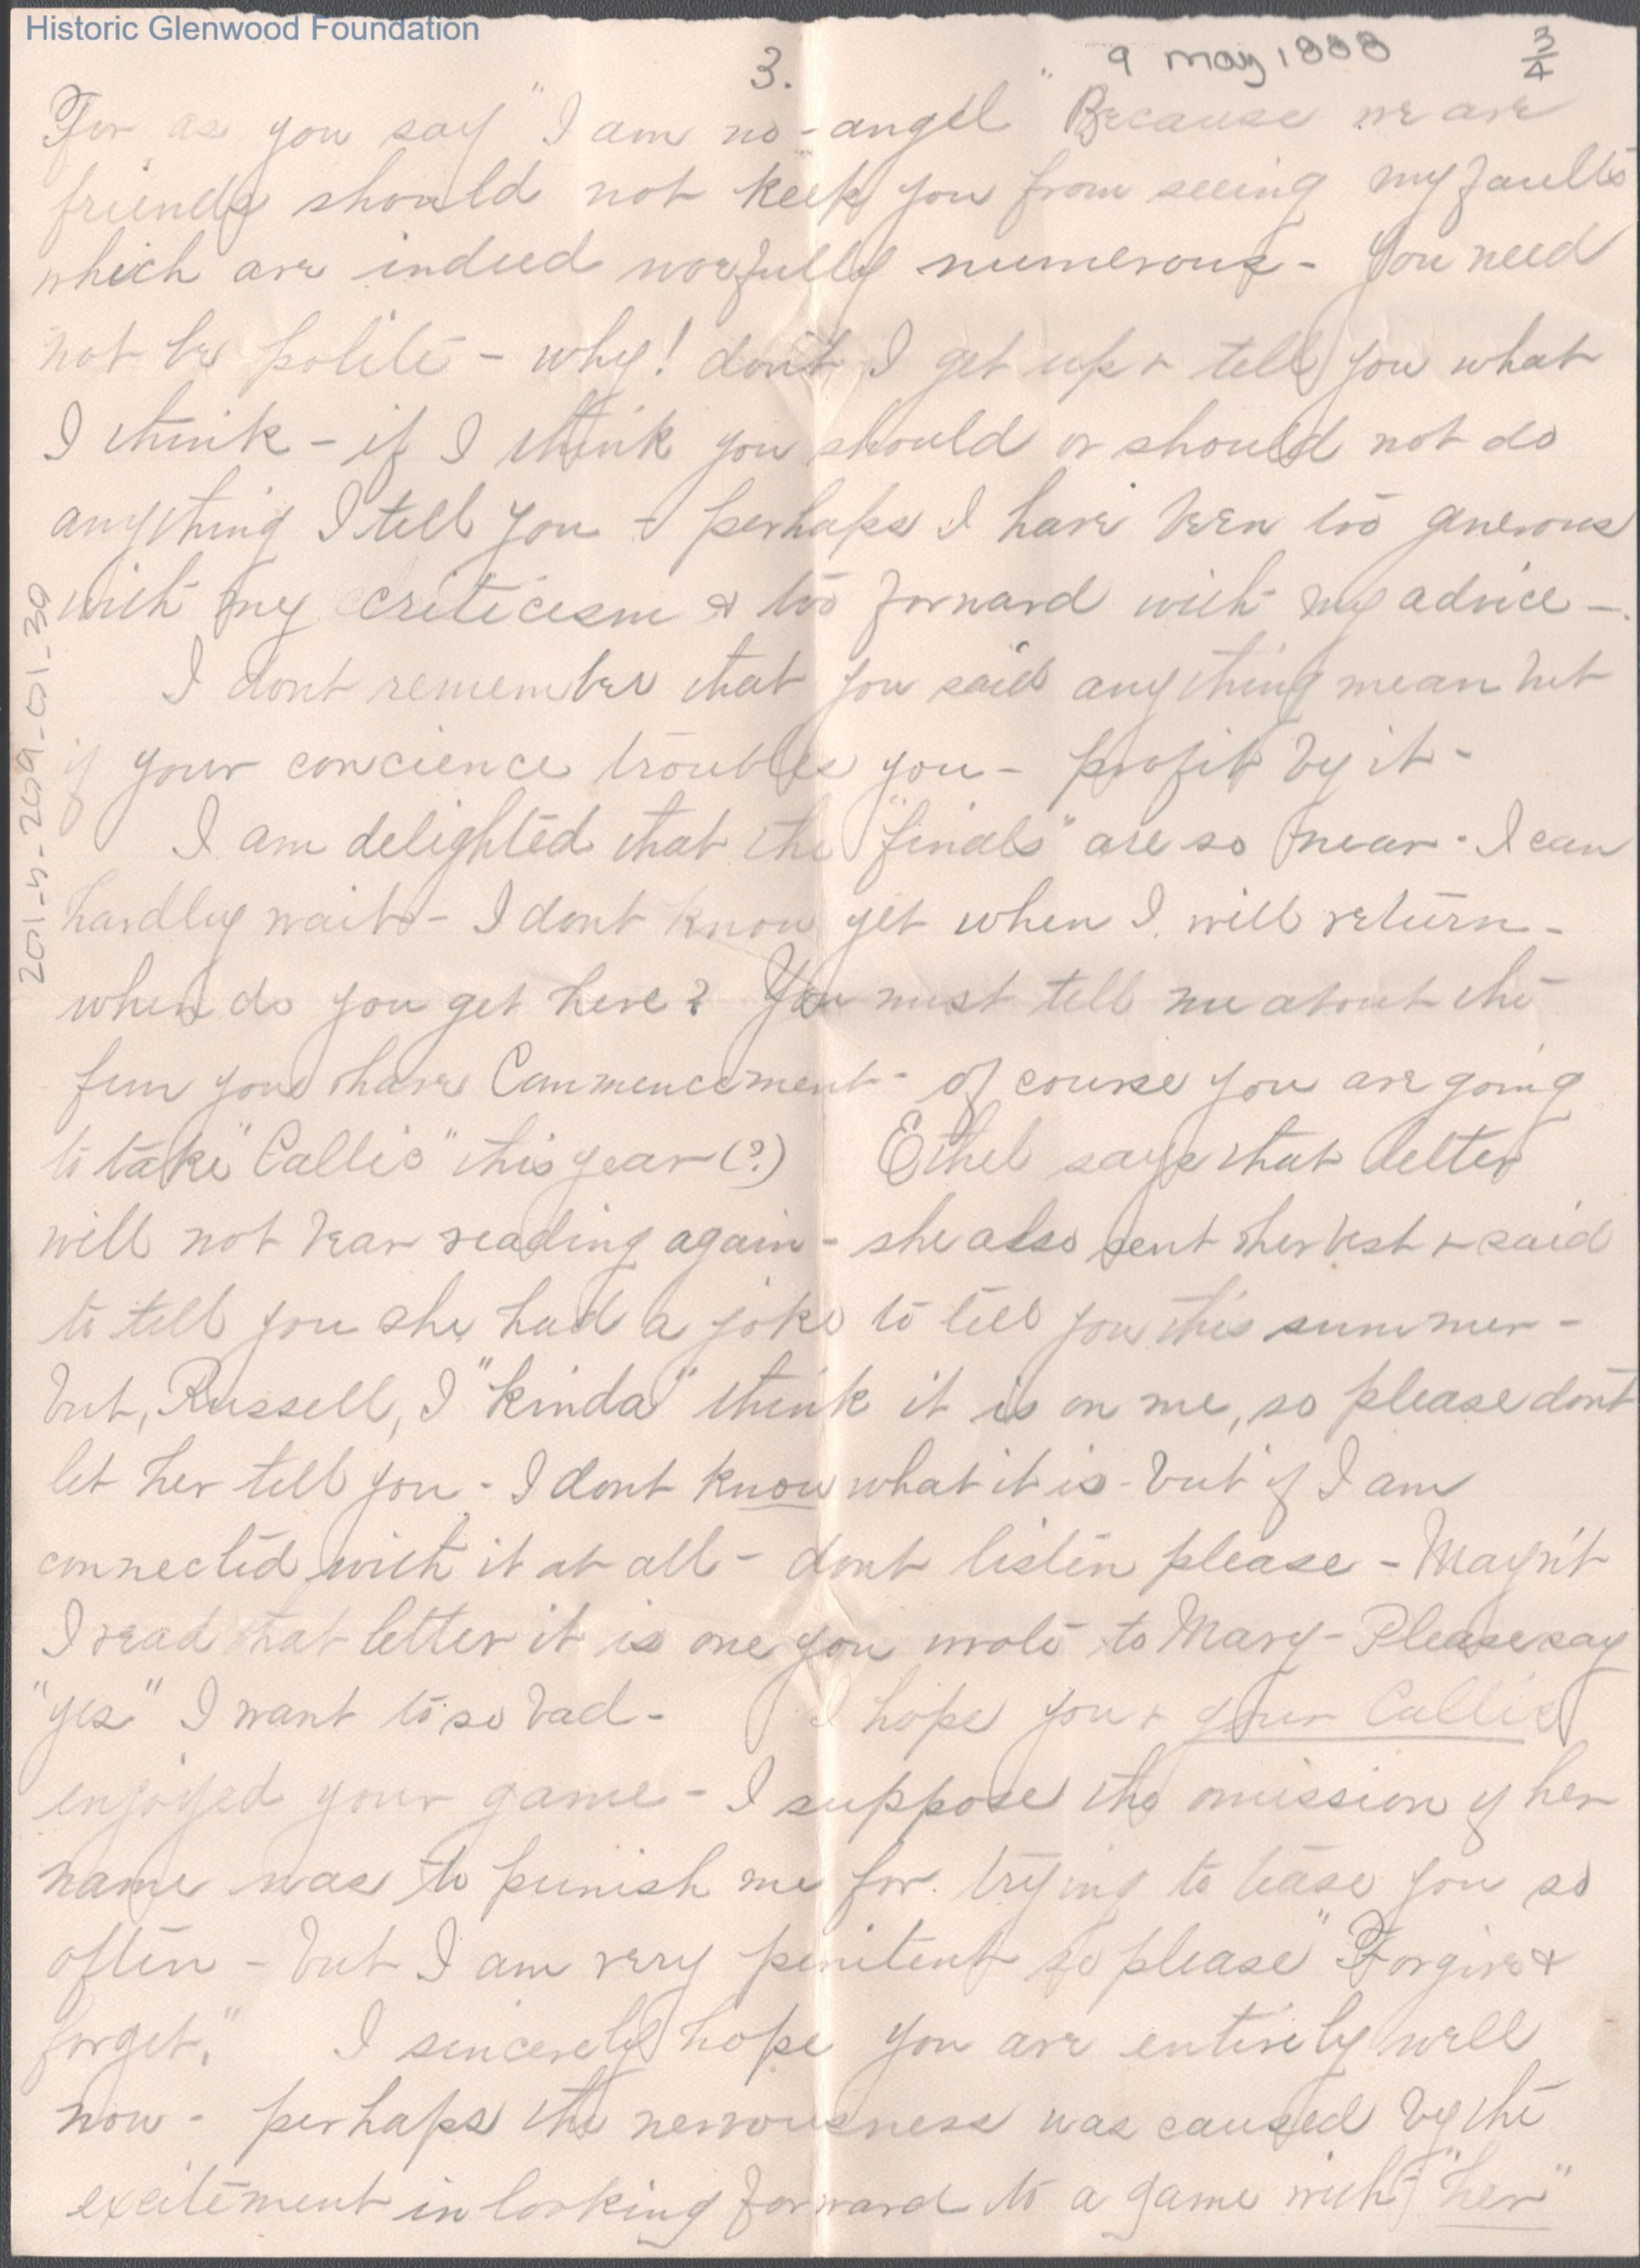 Historic Glenwood Foundation
3.
9 may 1888
3/4
For as you say "I am no-angel" Because we are
friends should not keep you from seeing my faults
which are indeed woefully numerous - You need
not be polite - why! don't I get up & tell you what
I think - if I think you should or should not do
anything I tell you - perhaps I have been too generous
with my criticism & too forward with my advice -.
I dont remember that you said anything mean but
if your concience troubles you - profit by it -
I am delighted that the "finals" are so near - I can
hardly wait - I dont know yet when I will return -
when do you get here? You must tell me about the
fun you have Commencement - of course you are going
to take "Callie" this year (?) Ethel says that letter
will not bear reading again - she also sent her best & said
to tell you she had a joke to tell you this summer -
but, Russell, I "kinda" think it is on me, so please don't
let her tell you - I dont know what it is - but if I am
connected with it at all - dont listen please - Mayn't
I read that letter it is one you wrote to Mary - Please say
"yes" I want to so bad - I hope you & your Callie
enjoyed your game - I suppose the omission of her
name was to punish me for trying to tease you so
often - but I am very penitent so please "Forgive &
forget." I sincerely hope you are entirely well
now - perhaps the nervousness was caused by the
excitement in looking forward to a game with "her"
2011-5-209-01-30